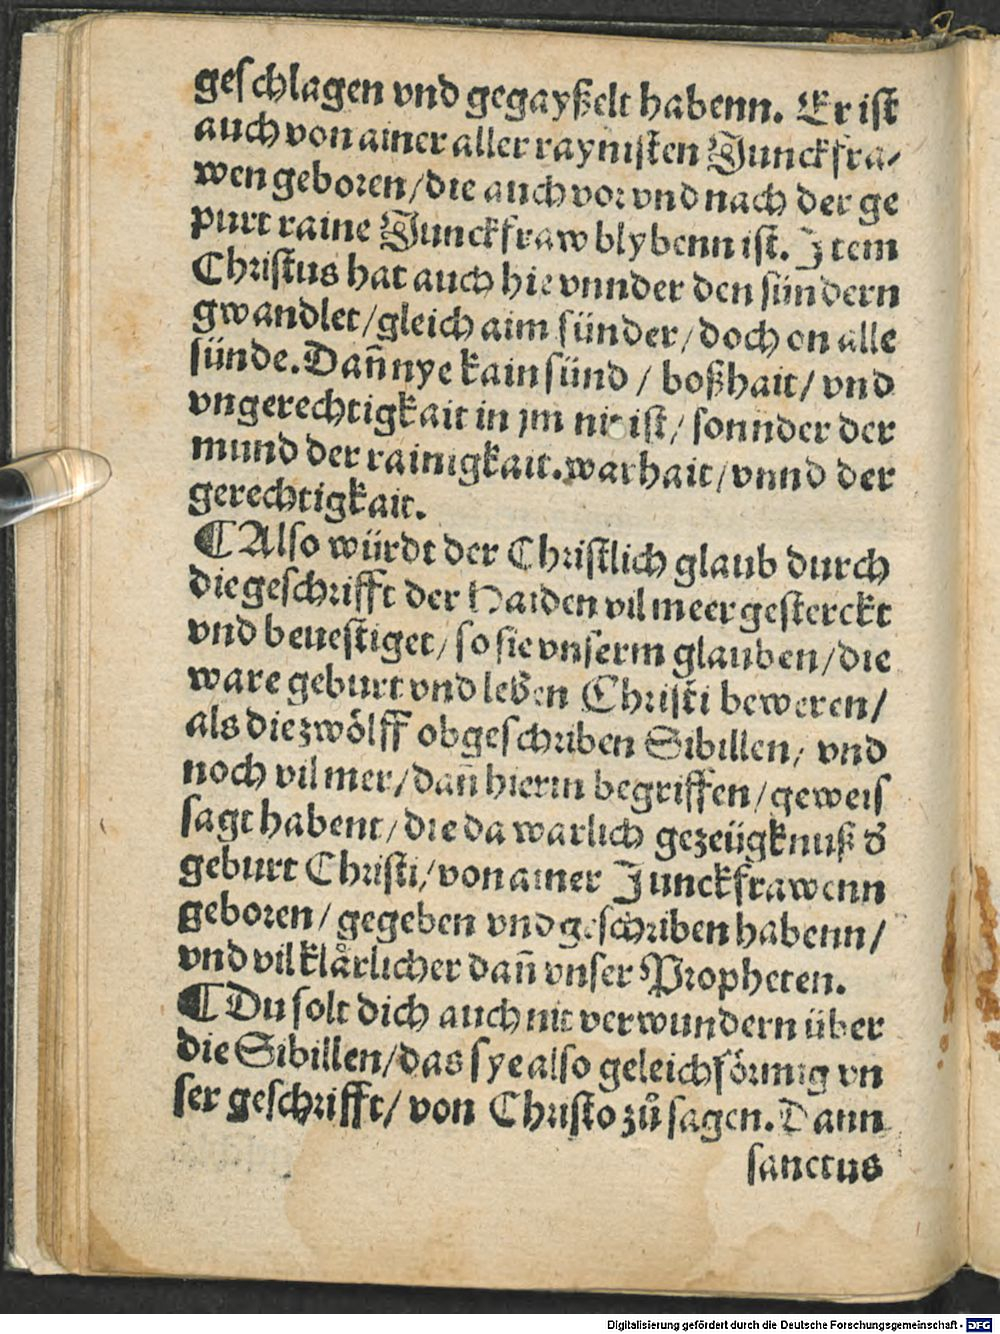 geschlagen vnd gegayßelt habenn. Er ist
auch von ainer aller raynisten Junckfra-
wen geboren/die auch vor vnd nach der ge
purt raine Junckfraw blybenn ist. Item
Christus hat auch hie vnnder den sündern
gwandlet/gleich aim sünder/doch on alle
sünde. Dañ nye kain sünd / boßhait/ vnd
vngerechtigkait in jm nie ist/ sonnder der
mund der rainigkait. warhait/vnnd der
gerechtigkait.
¶ Also würdt der Christlich glaub durch
die geschrifft der Haiden vil meer gesterckt
vnd beuestiget/ so sie vnserm glauben/die
ware geburt vnd leben Christi beweren/
als die zwölff obgeschriben Sibillen/ vnd
noch vil mer/dañ hierin begriffen/geweis
sagt habent/die da warlich gezeügknuß d̕
geburt Christi/von ainer Junckfrawenn
geboren/ gegeben vnd geschriben habenn/
vnd vil klårlicher dañ vnser Propheten.
¶ Du solt dich auch nit verwundern über
die Sibillen/das sye also geleichförmig vn
ser geschrifft/ von Christo zů sagen. Dann
sanctus
Digitalisierung gefördert durch die Deutsche Forschungsgemeinschaft - DFG